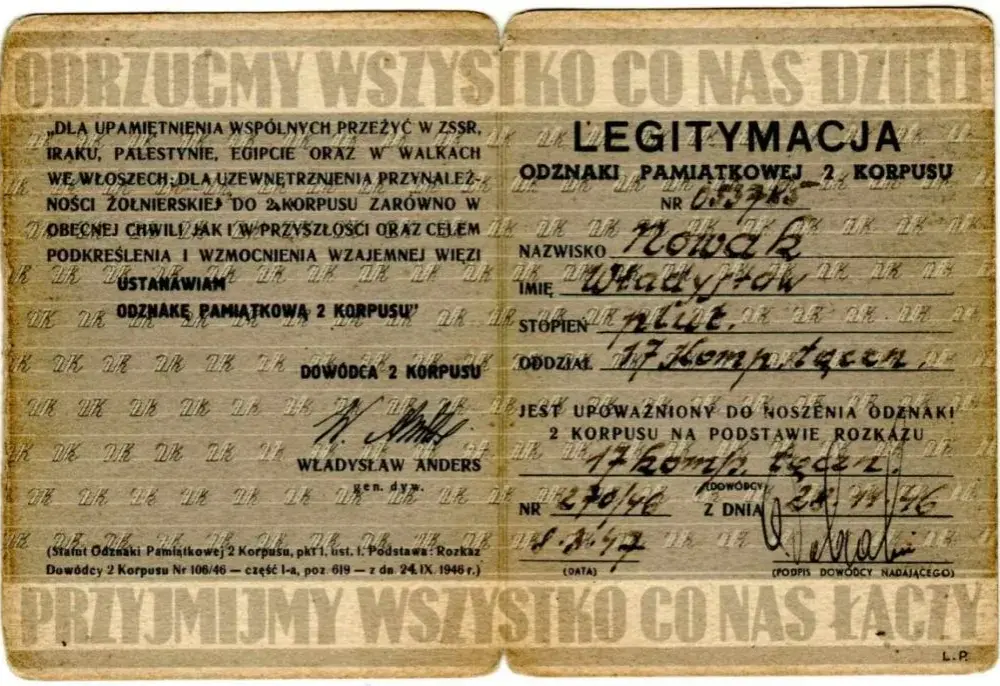 ODRZUĆMY WSZYSTKO CO NAS DZIELI
„DLA UPAMIĘTNIENIA WSPÓLNYCH PRZEŻYĆ W ZSSR,
IRAKU, PALESTYNIE, EGIPCIE ORAZ W WALKACH
WE WŁOSZECH; DLA UZEWNĘTRZNIENIA PRZYNALEŻ-
NOŚCI ŻOŁNIERSKIEJ DO 2 KORPUSU ZARÓWNO W
OBECNEJ CHWILI JAK I W PRZYSZŁOŚCI ORAZ CELEM
PODKREŚLENIA I WZMOCNIENIA WZAJEMNEJ WIĘZI
USTANAWIAM
ODZNAKĘ PAMIĄTKOWĄ 2 KORPUSU"
DOWÓDCA 2 KORPUSU
W. Anders
WŁADYSŁAW ANDERS
gen. dyw.
(Statut Odznaki Pamiątkowej 2 Korpusu, pkt 1, ust. I. Podstawa: Rozkaz
Dowódcy 2 Korpusu Nr 106/46 — część I-a, poz. 619 — z dn. 24. IX. 1946 r.)
LEGITYMACJA
ODZNAKI PAMIĄTKOWEJ 2 KORPUSU
NR
NAZWISKO Nowak
IMIĘ Władysław
STOPIEŃ plut.
ODDZIAŁ 17 Komp. łączn.
JEST UPOWAŻNIONY DO NOSZENIA ODZNAKI
2 KORPUSU NA PODSTAWIE ROZKAZU
17 komp. łączn.
(DOWÓDCY)
NR 270/46 Z DNIA
(DATA)
(PODPIS DOWÓDCY NADAJĄCEGO)
PRZYJMIJMY WSZYSTKO CO NAS ŁĄCZY
L.P.